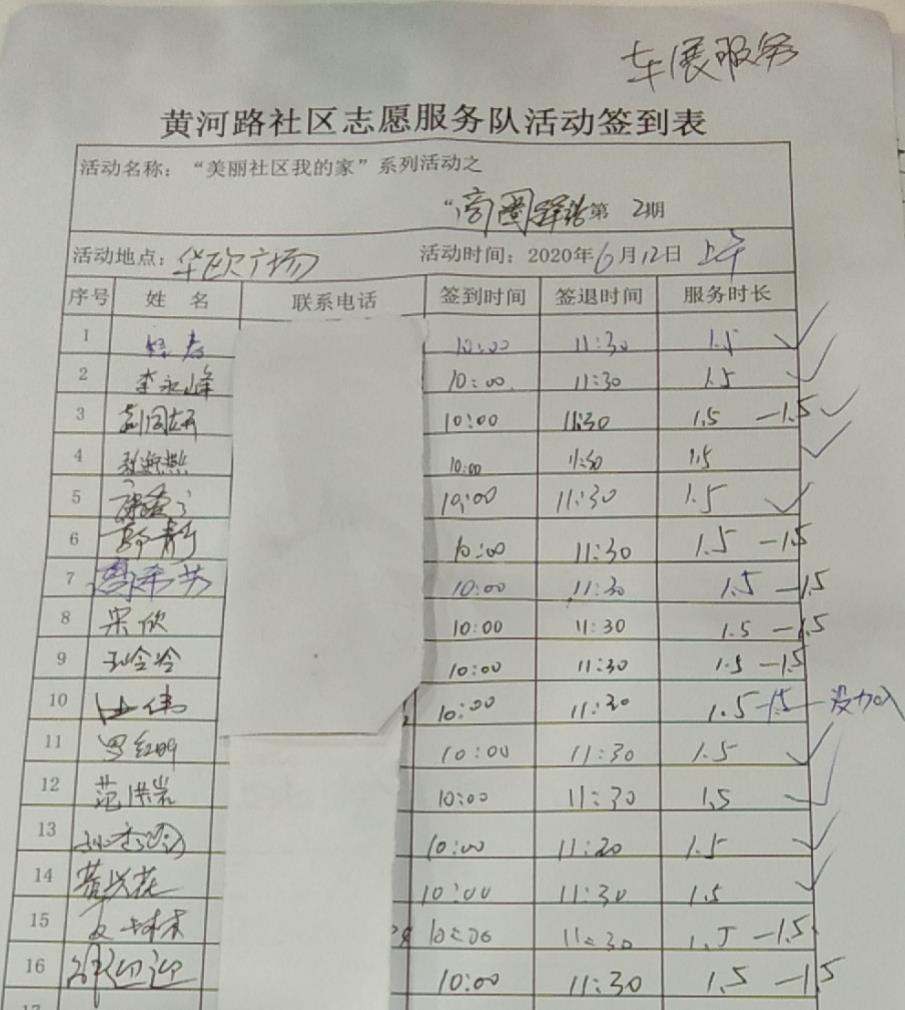 车展服务
黄河路社区志愿服务队活动签到表
活动名称：“美丽社区我的家”系列活动之
“商圈驿站第 2期
活动地点：华欧广场 活动时间：2020年6月12日 上午
序号 姓 名 联系电话 签到时间 签退时间 服务时长
1 10:00 11:30 1.5
2 李永峰 10:00 11:30 1.5
3 10:00 11:30 1.5 —1.5
4 10:00 11:30 1.5
5 10:00 11:30 1.5
6 郭青 10:00 11:30 1.5 —1.5
7 10:00 11:30 1.5 —1.5
8 宋欣 10:00 11:30 1.5 —1.5
9 孙玲玲 10:00 11:30 1.5 —1.5
10 伟 10:00 11:30 1.5 —1.5 — 没加入
11 罗红明 10:00 11:30 1.5
12 范洪岩 10:00 11:30 1.5
13 10:00 11:20 1.5
14 黄兴花 10:00 11:30 1.5
15 10:00 11:30 1.5 —1.5
16 邵迎迎 10:00 11:30 1.5 —1.5
17